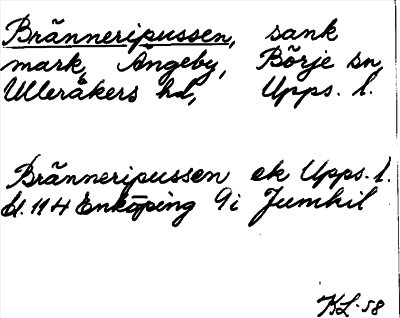 Bränneripussen, sank
mark, Ängeby, Börje sn,
Ulleråkers hd, Upps. l.
Bränneripussen ek Upps. l.
bl. 11 H Enköping 9i Jumkil
KL-58